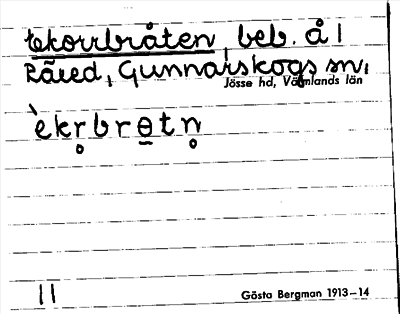 Ekorrbråten, beb. å l
Räed, Gunnarskogs sn,
Jösse hd, Värmlands län
èkr̥brɵ̠tn̥
11
Gösta Bergman 1913–14